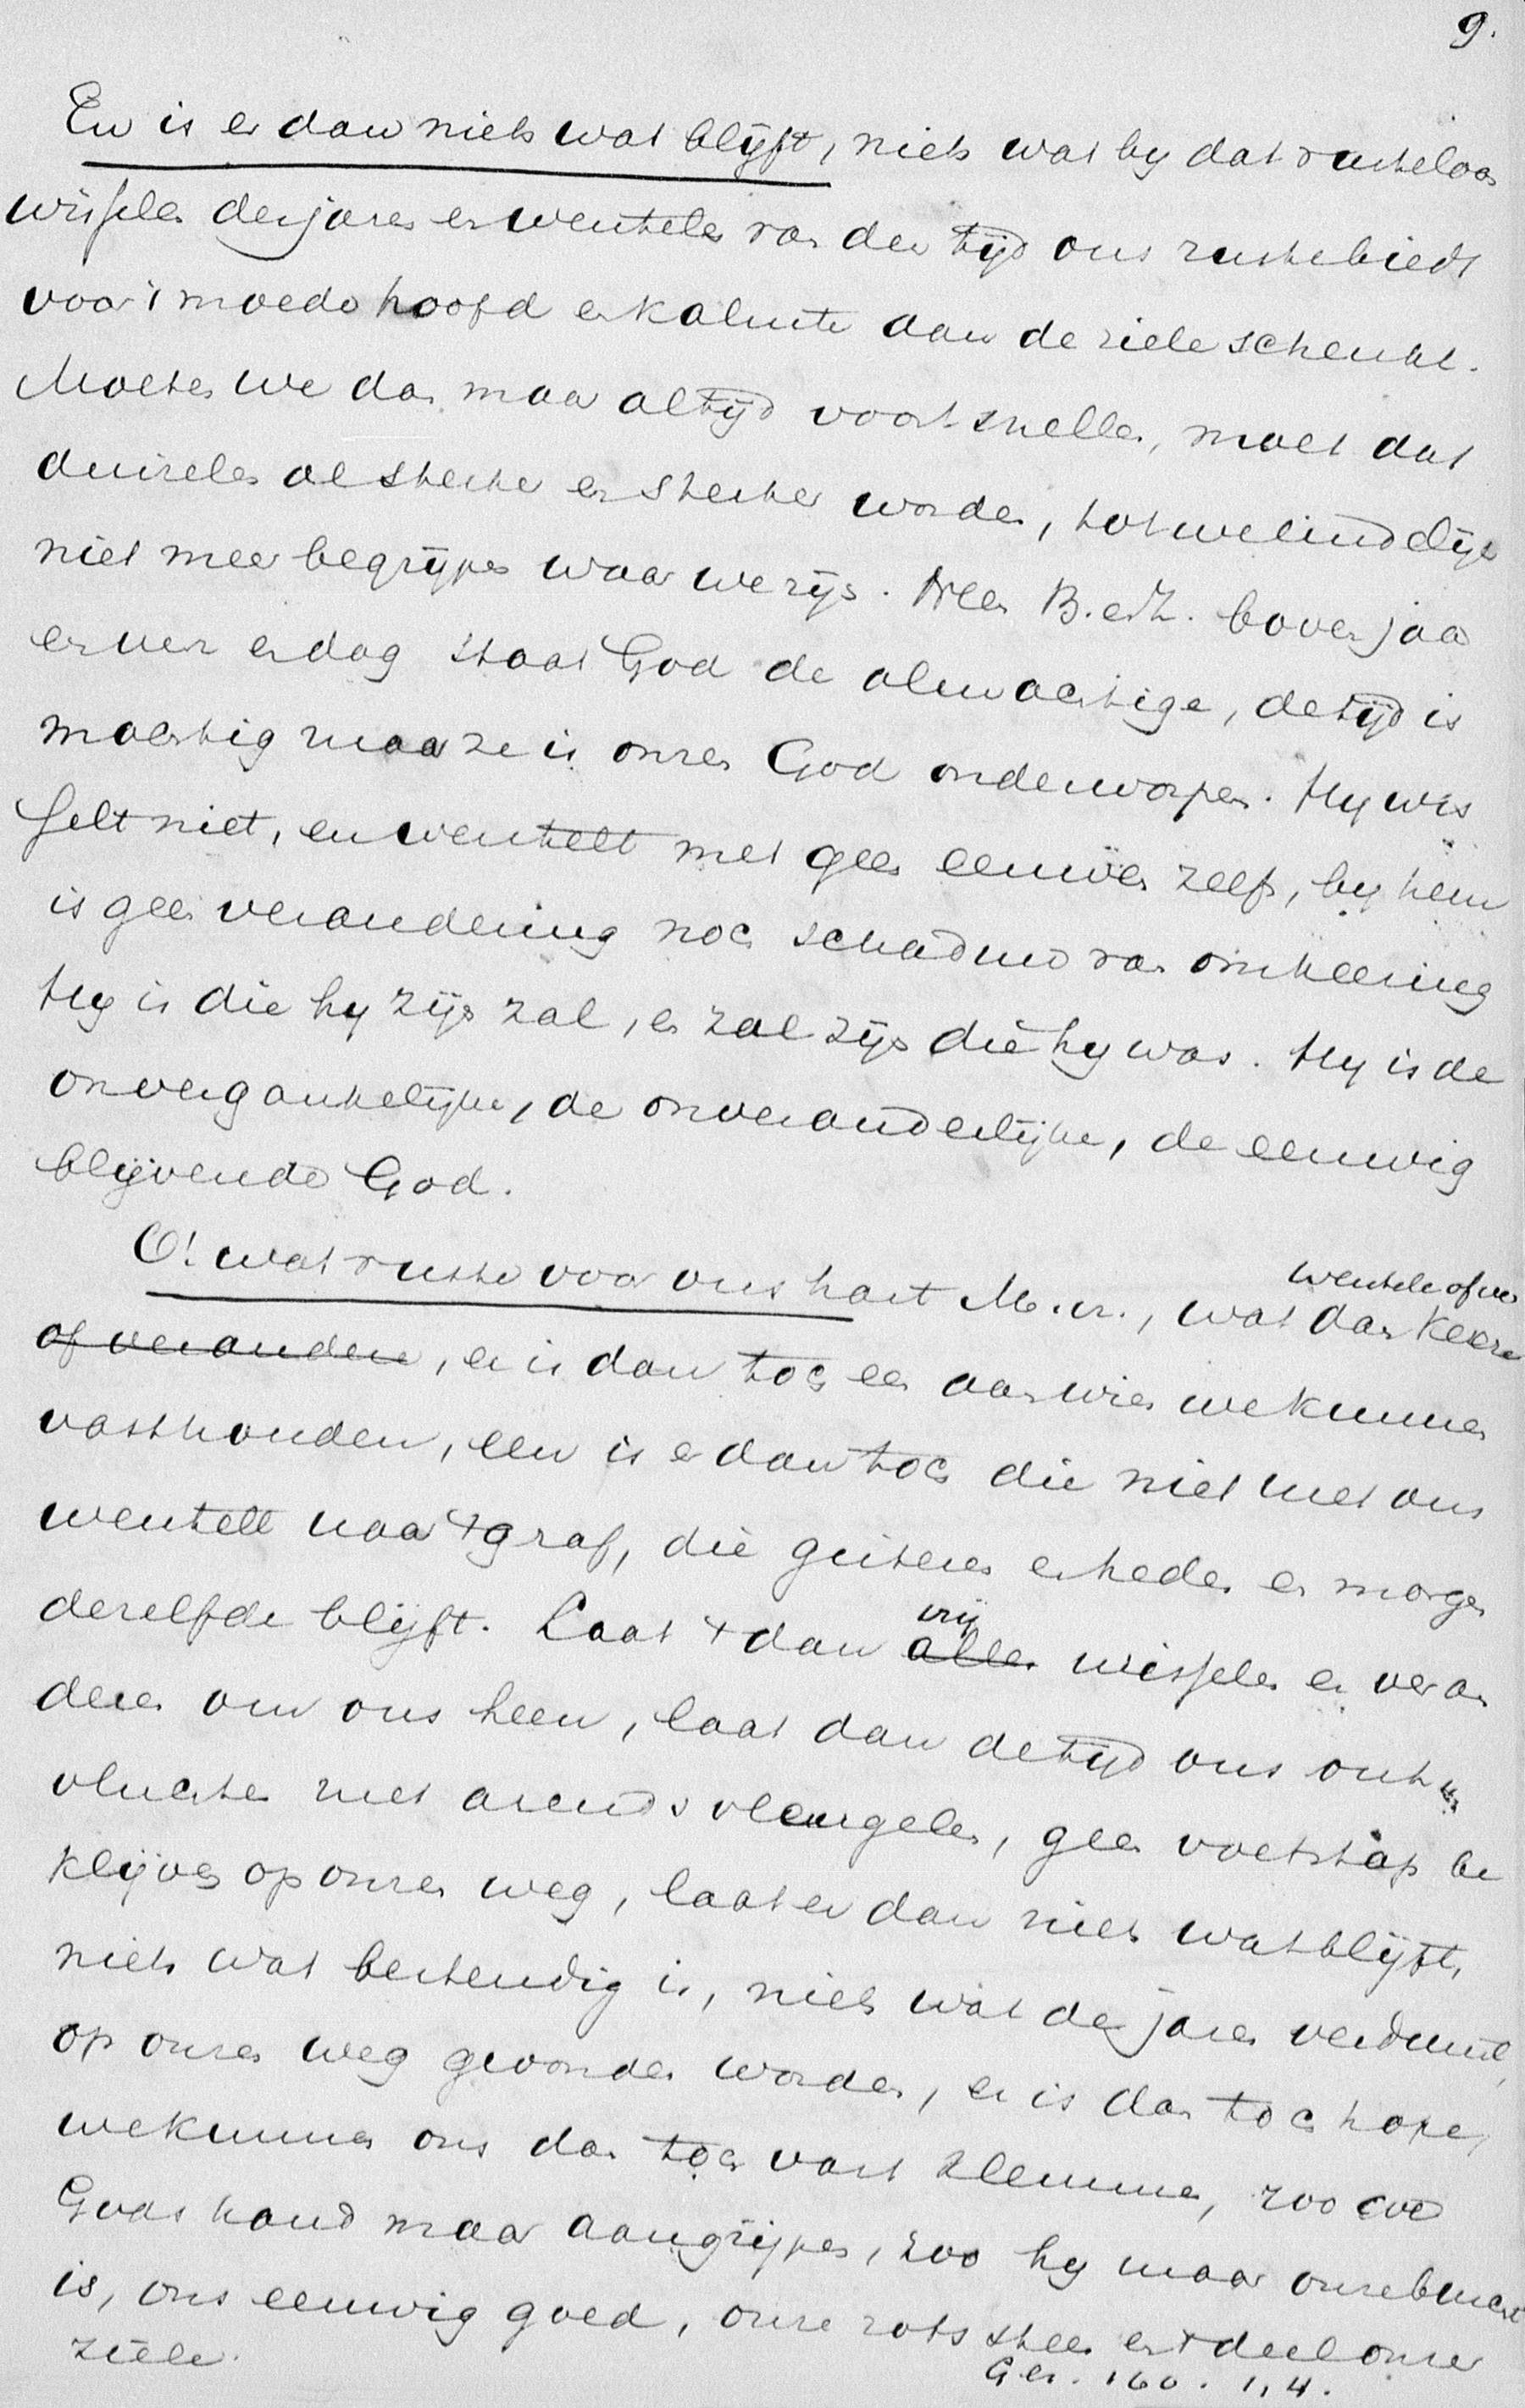 9.
En is er dan niets wat blijft, niets wat by dat rusteloos
wisselen der jaren en wentelen van den tijd ons ruste biedt
voor 't moede hoofd en kalmte aan de ziele schenkt.
Moeten we dan maar altijd voortsnellen, moet dat
duizelen al sterker en sterker worden, tot we eindelijk
niet meer begrijpen waar we zijn. Neen B. en Z. boven jaar
en uur en dag staat God de almachtige, de tijd is
machtig maar ze is onzen God onderworpen. Hy wis
selt niet, en wentelt met geen eeuwen zelfs, by hem
is geen verandering noch schaduw van omkeering
Hy is die hy zijn zal, en zal zijn die hy was. Hy is de
onvergankelijke, de onveranderlijke, de eeuwig
blijvende God.
O! wat ruste voor ons hart M. vr., wat dan wentele of ver keere
of verandere, er is dan toch een aan wien we kunnen
vasthouden, een is er dan toch die niet met ons
wentelt naar 't graf, die gisteren en heden en morgen
dezelfde blijft. Laat 't dan vrij alles wisselen en veran
deren om ons heen, laat dan de tijd ons ont
vluchten met arendsvleugelen, geen voetstap be
klijven op onzen weg, laat er dan niets wat blijft,
niets wat bestendig is, niets wat de jaren verduurt,
op onzen weg gevonden worden, er is dan toch hope,
we kunnen ons dan toch vast klemmen, zoo we
Gods hand maar aangrijpen, zoo hy maar onze burcht
is, ons eeuwig goed, onze rotssteen en 't deel onzer
ziele.
Gez. 160. 1, 4.